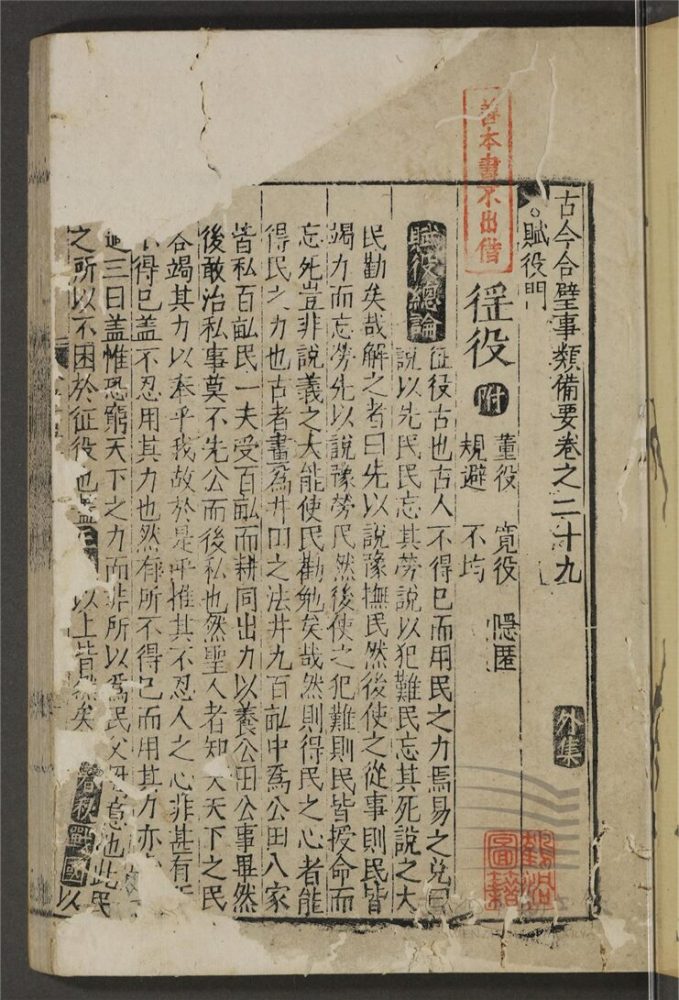 古今合璧事類備要卷之二十九 外集
賦役門
善本書不出借
徭役 附 董役 寬役 隱匿
規避 不均
賦役總論 征役古也古人不得已而用民之力焉易之兌曰
說以先民民忘其勞說以犯難民忘其死說之大
民勸矣哉解之者曰先以說豫撫民然後使之從事則民皆
竭力而忘勞先以說豫勞民然後使之犯難則民皆授命而
忘死豈非說義之大能使民勸勉矣哉然則得民之心者能
得民之力也古者畫為井田之法井九百畝中為公田八家
皆私百畝民一夫受百畝而耕同出力以養公田公事畢然
後敢治私事莫不先公而後私也然聖人者知 天下之民
各竭其力以奉乎我故於是乎推其不忍人之心非甚有
不得已盖不忍用其力也然有所不得已而用其力亦
過三日盖惟恐窮天下之力而非所以為民父母意也此民
之所以不困於征役也 以上皆然矣 春秋戰國 以